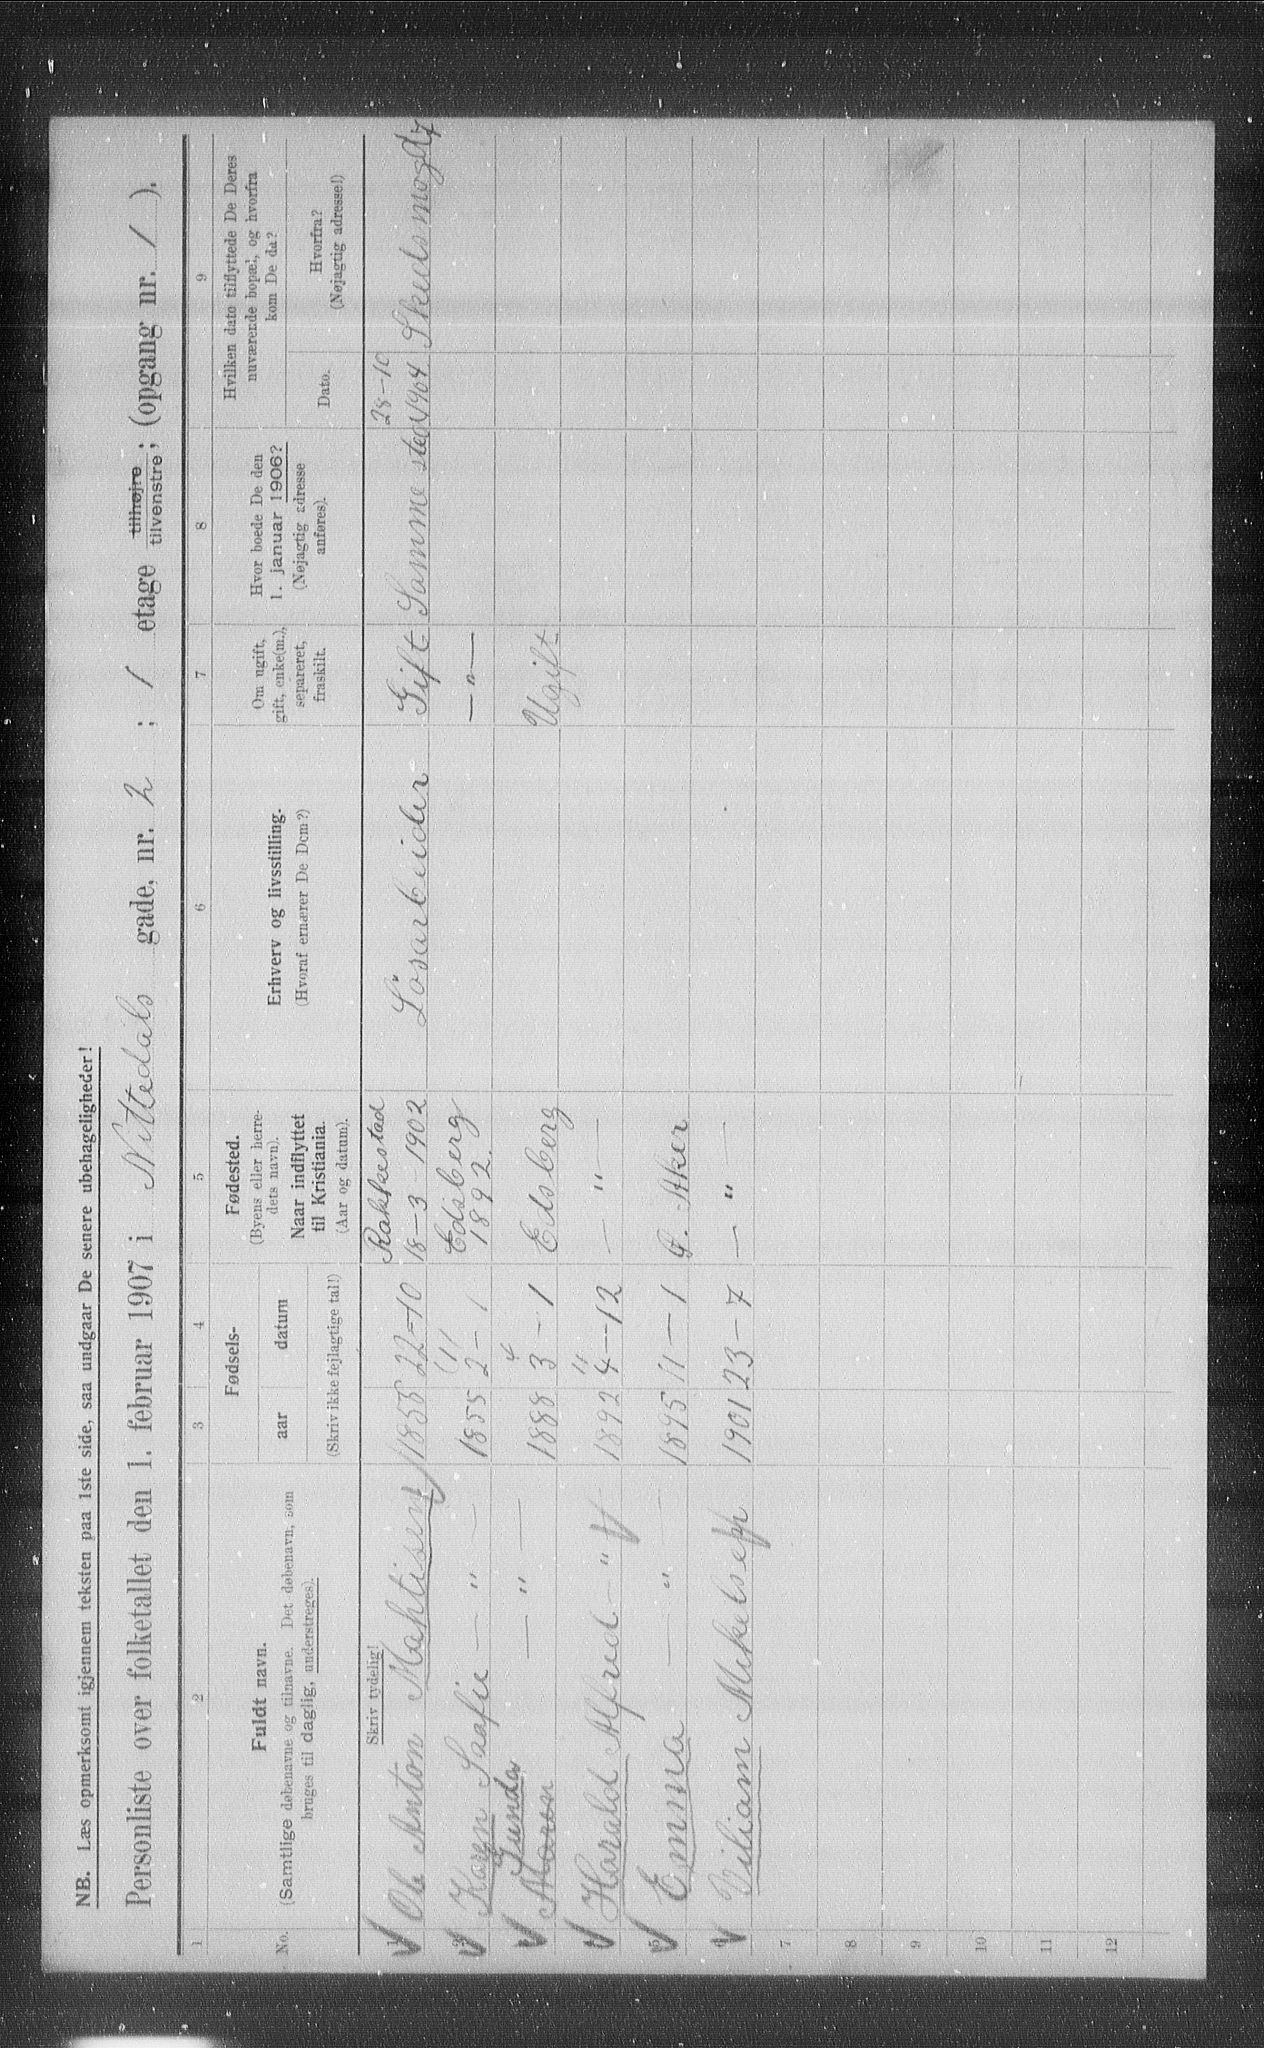 NB. Læs opmerksomt igjennem teksten paa 1ste side, saa undgaar De senere ubehageligheder!
Personliste over folketallet den 1. februar 1907 i Nittedals gade, nr. 2 ; 1 etage tilhøjre tilvenstre ; (opgang nr. 1 ).
1 2 3 4 5 6 7 8 9
No.
Fuldt navn.
(Samtlige døbenavne og tilnavne. Det døbenavn, som
bruges til daglig, understreges).
Fødsels-
aar datum
(Skriv ikke fejlagtige tal!)
Fødested.
(Byens eller herre-
dets navn).
Naar indflyttet
til Kristiania.
(Aar og datum).
Erhverv og livsstilling.
(Hvoraf ernærer De Dem?)
Om ugift,
gift, enke(m.),
separeret,
fraskilt.
Hvor boede De den
1. januar 1906?
(Nøjagtig adresse
anføres).
Hvilken dato tilflyttede De Deres
nuværende bopæl, og hvorfra
kom De da?
Dato.
Hvorfra?
(Nøjagtig adresse!)
Skriv tydelig!
Rakkestad
28-10
1 Ole Anton Mahtisen 1855 22-10 18-3-1902 Lösarbeider Gift Samme sted 1904
Edsberg
2 Karen Saafie — " — 1855 2-1 1892. — " —
Gunda
3 Maren — " — 1888 3-1 Edsberg Ugift
4 Harald Alfred — " — 1892 4-12 — " —
5 Emma — " — 1895 11-1 Ø. Aker
6 Viliam Mekelsen 1901 23-7 — " —
7
8
9
10
11
12